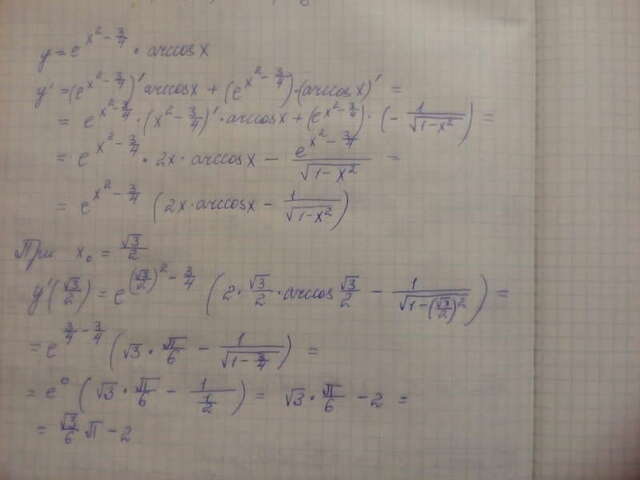 y = e^{x² - 3/4} · arccosx
y' = (e^{x² - 3/4})' arccosx + (e^{x² - 3/4}) · (arccosx)' =
= e^{x² - 3/4} · (x² - 3/4)' · arccosx + (e^{x² - 3/4}) · (- 1/√(1-x²)) =
= e^{x² - 3/4} · 2x · arccosx - e^{x² - 3/4}/√(1-x²) =
= e^{x² - 3/4} (2x · arccosx - 1/√(1-x²))
При x₀ = √3/2
y'(√3/2) = e^{(√3/2)² - 3/4} (2 · √3/2 · arccos √3/2 - 1/√(1-(√3/2)²)) =
= e^{3/4 - 3/4} (√3 · π/6 - 1/√(1-3/4)) =
= e⁰ (√3 · π/6 - 1/(1/2)) = √3 · π/6 - 2 =
= √3/6 π - 2